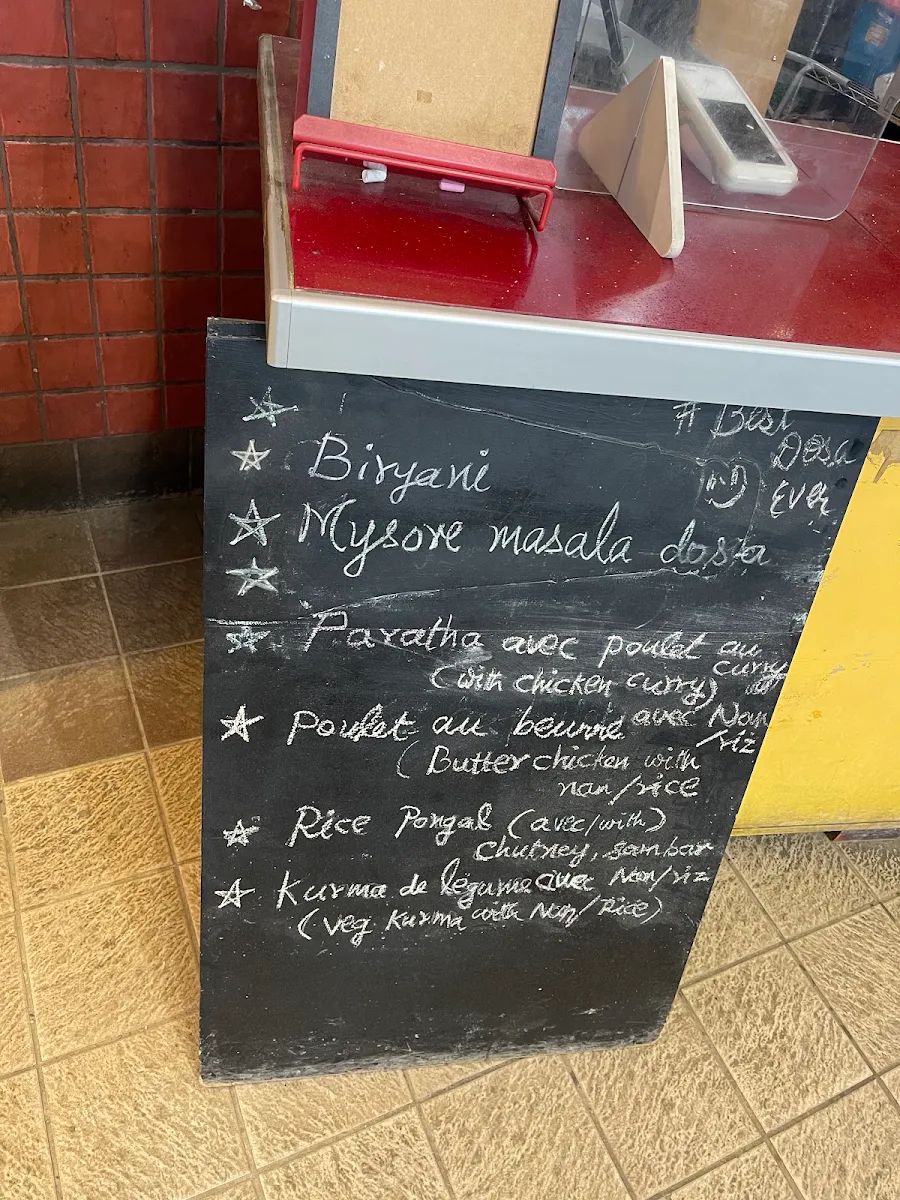 # Best
Dosa
Ever
Biryani
Mysore masala dosa
Paratha avec poulet au
curry
(with chicken curry)
Poulet au beurre avec Nan
/riz
(Butter chicken with
nan/rice
Rice Pongal (avec/with)
chutney, sambar
Kurma de légume avec Nan/riz
(veg Kurma with Nan/Rice)